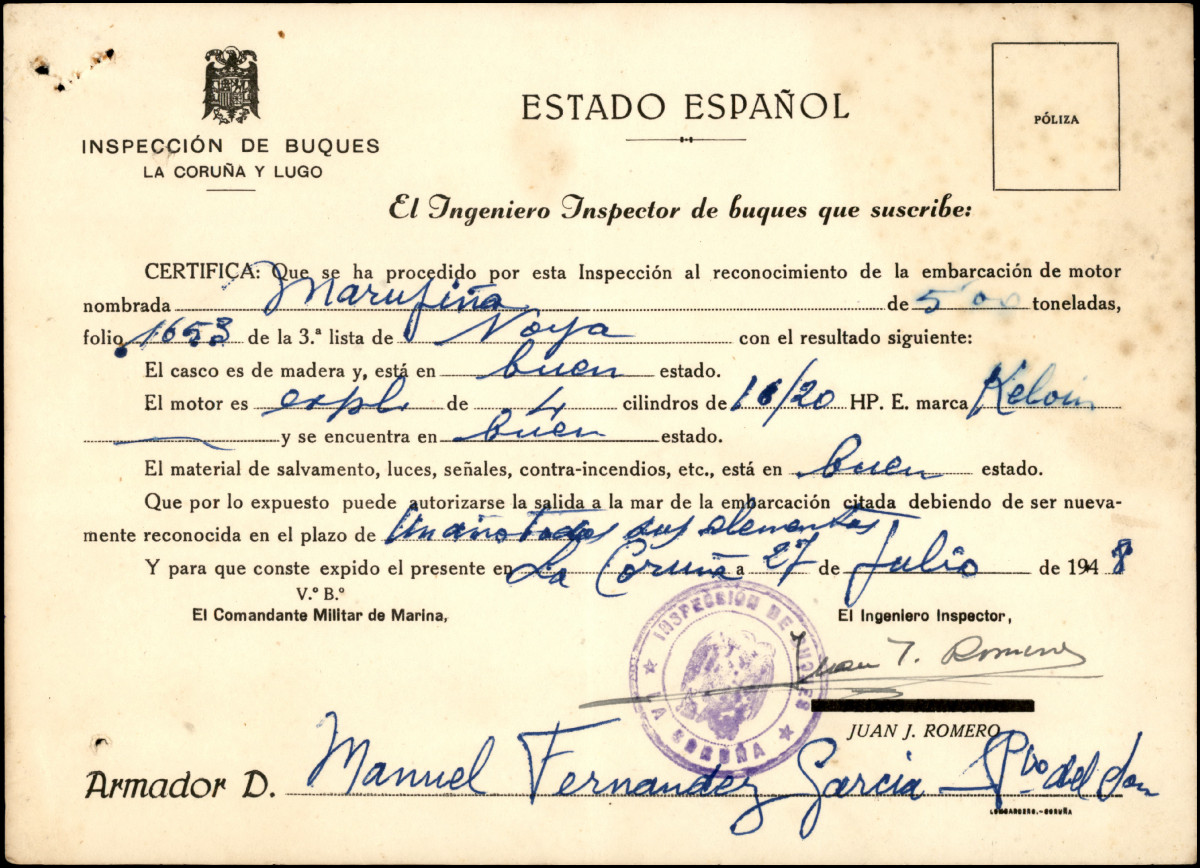 INSPECCIÓN DE BUQUES
LA CORUÑA Y LUGO
ESTADO ESPAÑOL
PÓLIZA
El Ingeniero Inspector de buques que suscribe:
CERTIFICA: Que se ha procedido por esta Inspección al reconocimiento de la embarcación de motor
nombrada Marufiña de 5'00 toneladas,
folio 1653 de la 3.ª lista de Noya con el resultado siguiente:
El casco es de madera y, está en buen estado.
El motor es expl. de 4 cilindros de 16/20 HP. E. marca Kelvin
y se encuentra en buen estado.
El material de salvamento, luces, señales, contra-incendios, etc., está en buen estado.
Que por lo expuesto puede autorizarse la salida a la mar de la embarcación citada debiendo de ser nueva-
mente reconocida en el plazo de Un año todos sus elementos
Y para que conste expido el presente en La Coruña a 27 de Julio de 1948
V.º B.º
El Comandante Militar de Marina,
El Ingeniero Inspector,
INSPECCIÓN DE BUQUES
LA CORUÑA
Juan J. Romero
JUAN J. ROMERO
Armador D. Manuel Fernandez Garcia Pto del Son
LOMBARDERO.-CORUÑA